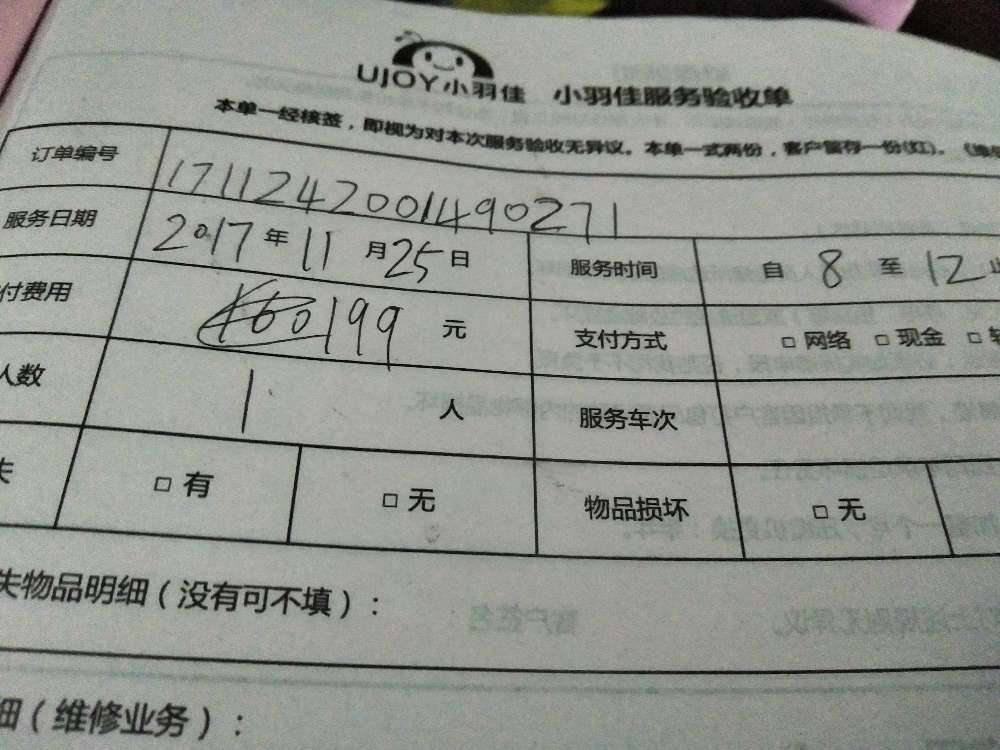 UJOY小羽佳 小羽佳服务验收单
本单一经核签，即视为对本次服务验收无异议。本单一式两份，客户留存一份(红)。
订单编号 171124200149027 1
服务日期 2017年11月25日 服务时间 自8至12
付费用 199元 支付方式 □ 网络 □ 现金 □
人数 1人 服务车次
失 □ 有 □ 无 物品损坏 □ 无
失物品明细（没有可不填）：
细（维修业务）：